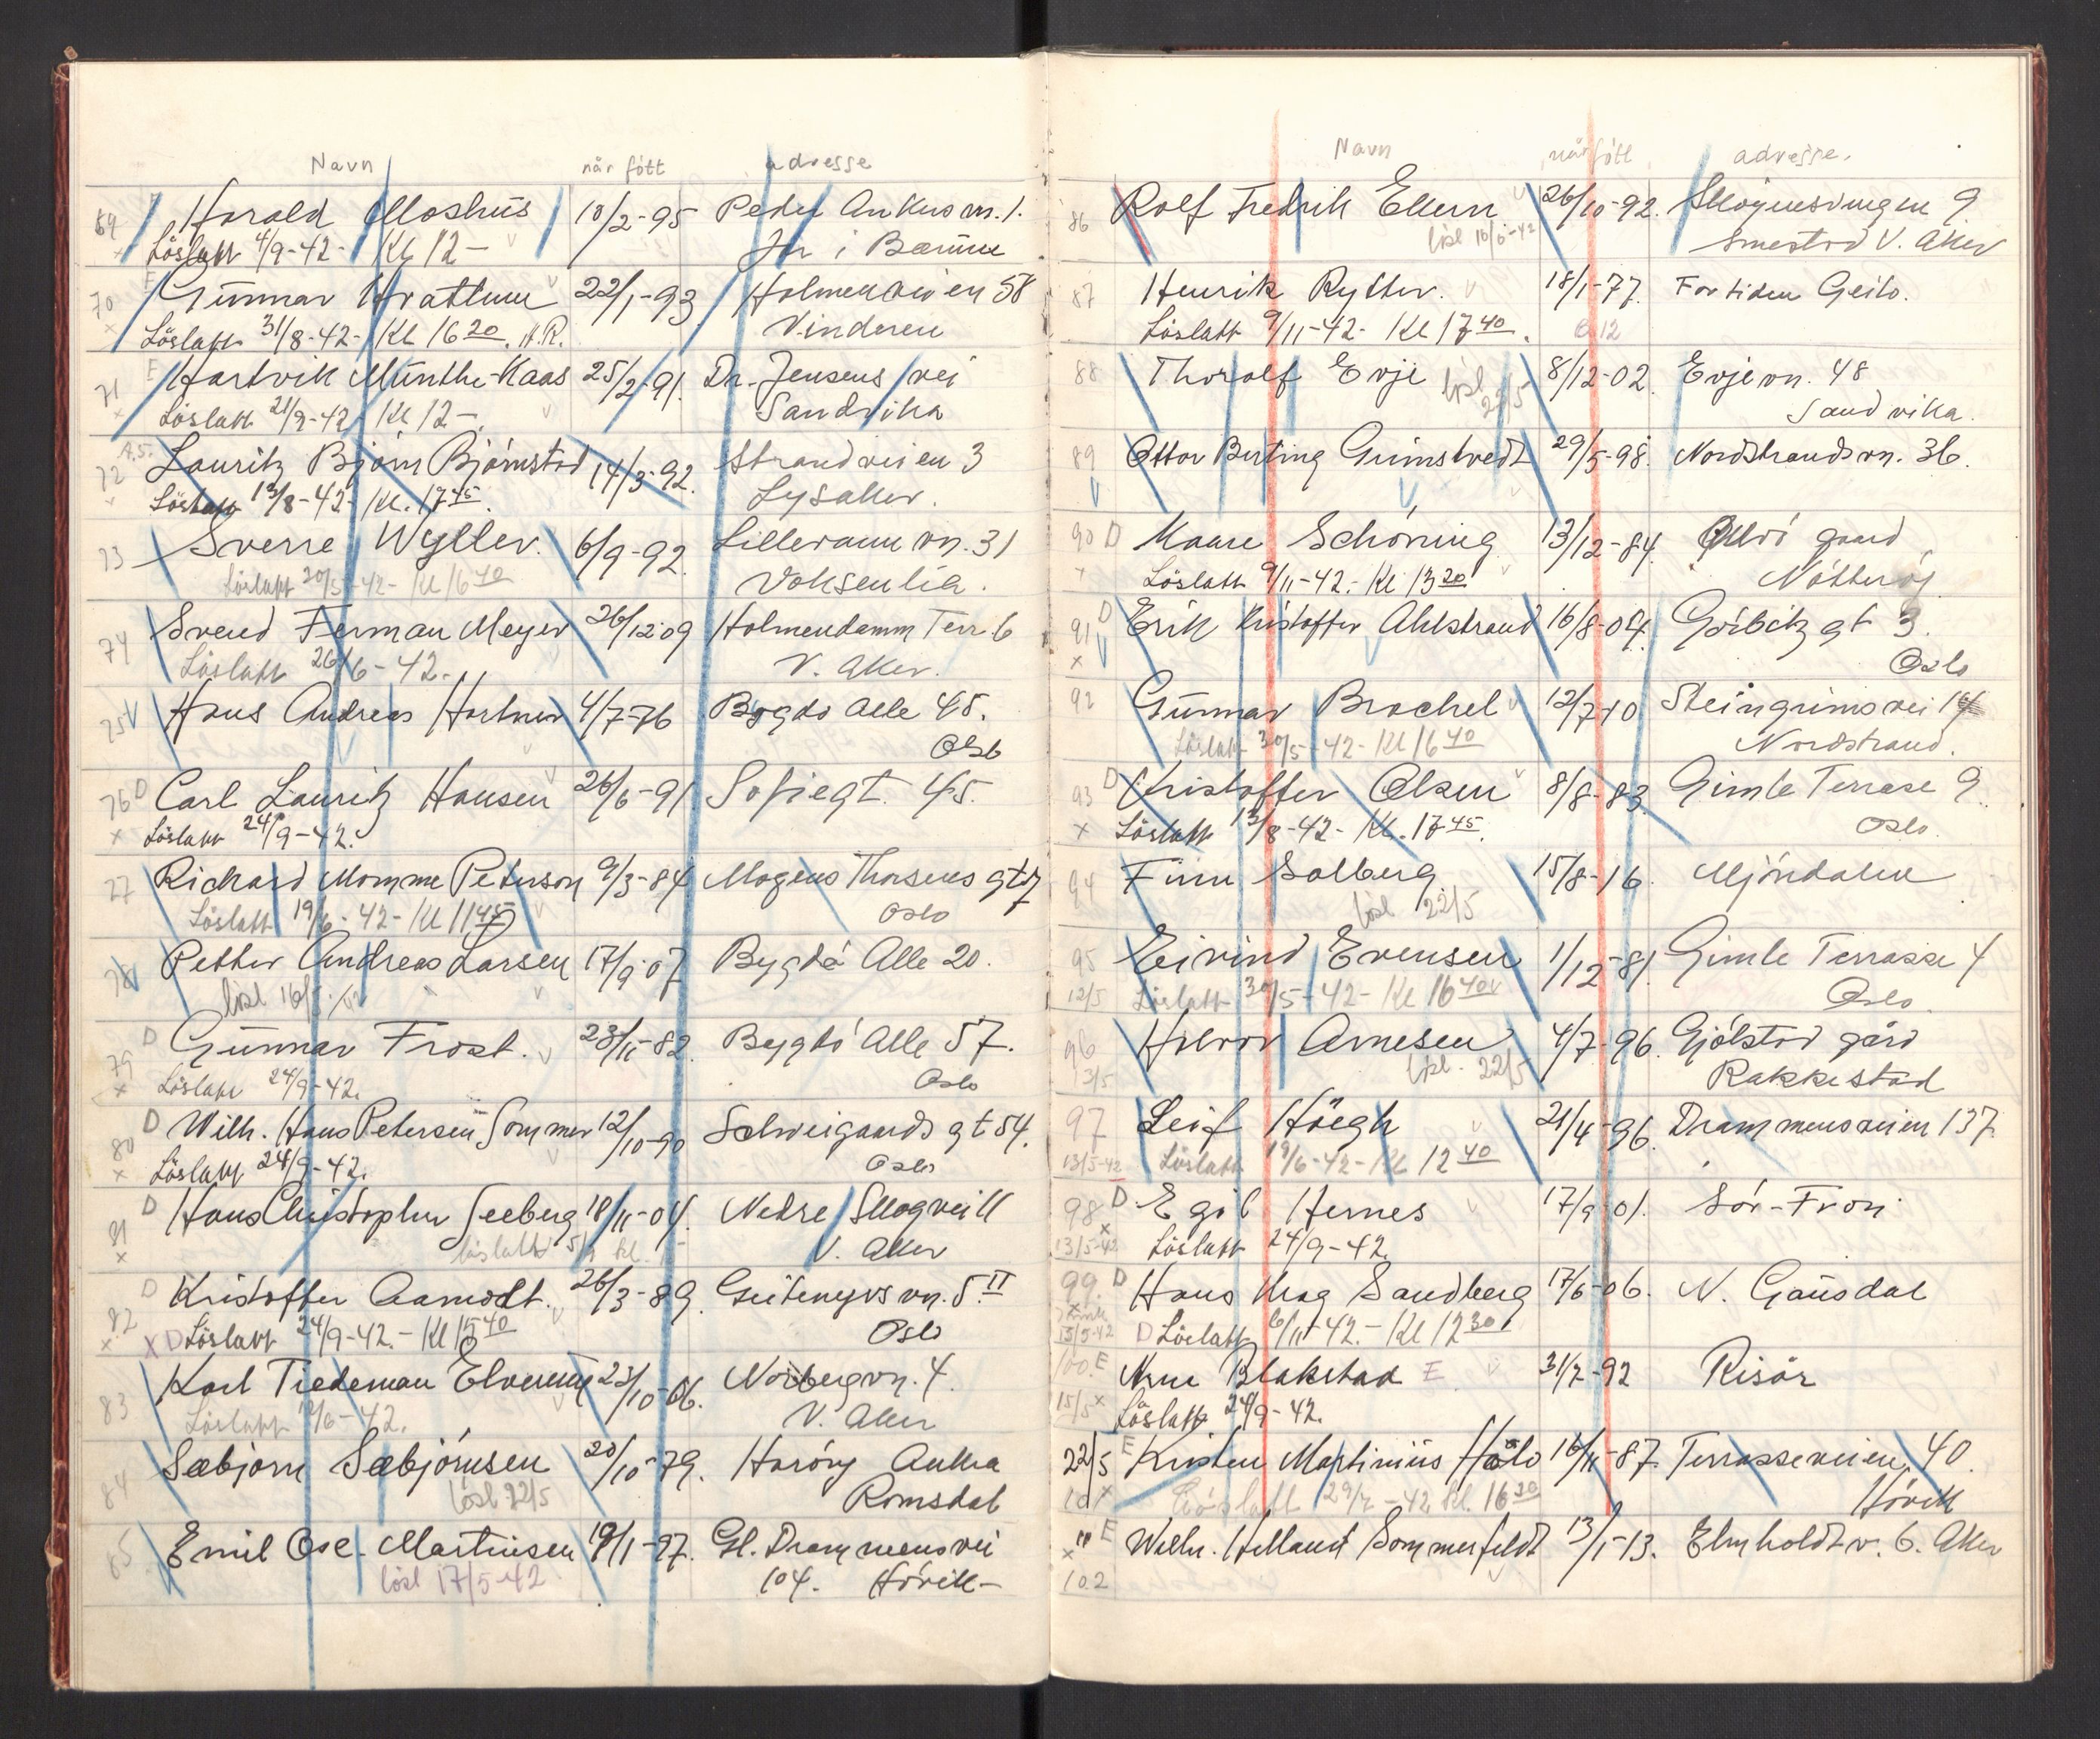 Navn når fött adresse
69 Harald Moshus 10/2-95 Peder Ankers vn. 1.
Löslatt 4/9-42- Kl 12- Jar i Bærum
70 E Gunnar Hvattum 22/1-93 Holmenveien 58
Löslatt 31/8-42- Kl 16 20. A.R. Vinderen
71 E Hartvik Munthe-Kaas 25/2-91. Dr. Jensens vei
Löslatt 21/9-42- Kl 12- Sandvika
72 Lauritz Bjørn Bjørnstad 14/3-92. Strandveien 3
Löslatt 13/8-42- Kl. 17 45. Lysaker.
73 Sverre Wyller. 6/9-92. Lillevann vn. 31
Löslatt 30/5-42- Kl 16 40 Voksenlia.
74 Svend Ferman Meyer 26/12-09 Holmendamm Terr. 6
Löslatt 26/6-42. V. Aker.
75 Hans Andreas Hortner 4/7-76 Bygdö Alle 45.
Oslo
76 D Carl Lauritz Hansen 26/6-91 Sofiegt. 45.
x Löslatt 24/9-42.
77 Richard Momme Peterson 9/3-84 Mogens Thorsens gt 7
Löslatt 19/6-42- Kl 11 45 Oslo
78 Petter Andreas Larsen 17/9-07 Bygdö Alle 20.
lösl 16/5
79 D Gunnar Frost. 23/11-82. Bygdö Alle 57.
x Löslatt 24/9-42. Oslo
80 D Wilh. Hans Petersen Sommer 12/10-90 Schweigaards gt 54.
x Löslatt 24/9-42. Oslo
81 D Hans Christopher Seeberg 18/11-04. Nedre Skogvei 11
x löslatt V. Aker
82 D Kristoffer Aamodt. 26/3-89. Geitemyrs vn. 5. II
x x D Löslatt 24/9-42.- Kl 15 40 Oslo
83 Karl Tiedeman 23/10-06. Norbergvn. 4.
Löslatt 19/6-42. V. Aker
84 Sæbjørn Sæbjørnsen 20/10-79. Haröy Aukra
lösl 22/5 Romsdal
85 Emil Ose-Martinsen 19/1-97. Gl. Drammensvei
lösl 17/5-42 104. Hövik-
Navn når fött adresse.
86 Rolf Fredrik 26/10-92. 9.
lösl 16/6-42 Smestad V. Aker
87 Henrik Rytter. 18/1-77. For tiden Geilo.
Löslatt 9/11-42- Kl 17 40.
88 Thorolf Evje lösl 22/5 8/12-02. Evjevn. 48
Sandvika.
89 Ottar Berting Grimstvedt 29/5-98. Nordstrandsvn. 36.
90 D Kaare Schöning 13/12-84. gaard
x Löslatt 9/11-42.- Kl 13 20 Nötteröy
91 D Erik Kristoffer Ahlstrand 16/8-04. Görbitz gt 3.
x Oslo
92 Gunnar Brochel 12/7-10. Steingrimsvei 14
Löslatt 30/5-42- Kl 16 40 Nordstrand.
93 D Kristoffer Olsen 8/8-83. Gimle Terrase 9.
x Löslatt 13/8-42- Kl. 17 45. Oslo.
94 Finn Solberg 15/8-16. Mjöndalen
lösl 22/5
95 Eivind Evensen 1/12-81. Gimle Terrasse 4
12/5 Löslatt 30/5-42- Kl 16 40 Oslo
96 Halvor Arnesen 4/7-96. Gjölstad gård
13/5 lösl. 22/5 Rakkestad
97 Leif Höegh 21/4-96. Drammensveien 137.
13/5-42 Löslatt 19/6-42- Kl 12 40
98 D Egil Hernes 17/9-01. Sör-Fron
x 13/5-42 Löslatt 24/9-42.
99. D Hans Krag Sandberg 17/6-06. N. Gausdal
13/5-42 D Löslatt 6/11-42.- Kl 12 30
100. E Arne Blakstad E 31/7-92 Risör
15/5 x Löslatt 24/9-42.
22/5 E Kristen Martinius Hålo 16/11-87. Terrasseveien 40.
101 x Löslatt 29/7-42 kl. 16 20 Hövik
" E Wilh. Helland Sommerfeldt 13/1-13. Elmholdt v. 6. Aker
x 102